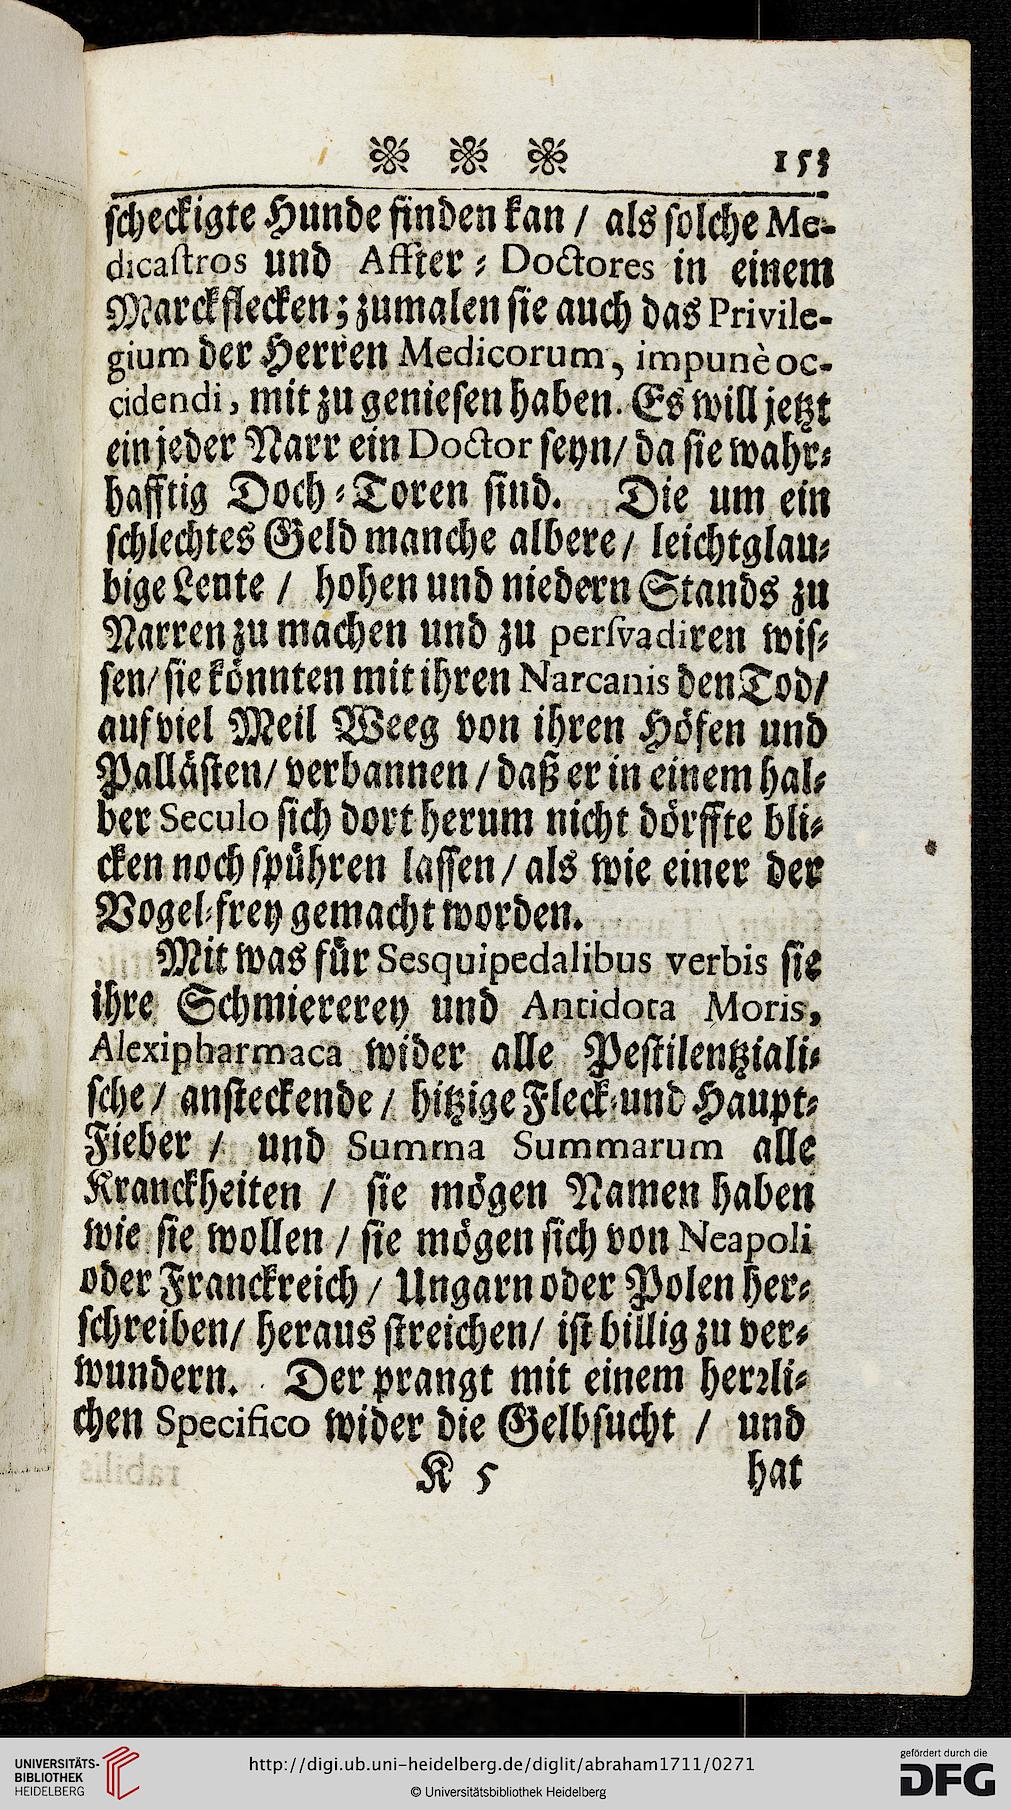 153
scheckigte Hunde finden kan / als solche Me-
dicaſtros und Affter-Doctores in einem
Marckflecken; zumalen sie auch das Privile-
gium der Herren Medicorum, impunè oc-
cidendi, mit zu geniesen haben. Es will jetzt
ein jeder Narr ein Doctor seyn / da sie wahr-
hafftig Doch-Toren sind. Die um ein
schlechtes Geld manche albere / leichtglau-
bige Leute / hohen und niedern Stands zu
Narren zu machen und zu perſvadiren wis-
sen / sie könnten mit ihren Narcanis den Tod /
auf viel Meil Weeg von ihren Höfen und
Pallästen / verbannen / daß er in einem hal-
ber Seculo sich dort herum nicht dörffte bli-
cken noch spühren lassen / als wie einer der
Vogel-frey gemacht worden.
Mit was für Sesquipedalibus verbis sie
ihre Schmiererey und Antidota Moris,
Alexipharmaca wider alle Pestilentziali-
sche / ansteckende / hitzige Fleck- und Haupt-
Fieber / und Summa Summarum alle
Kranckheiten / sie mögen Namen haben
wie sie wollen / sie mögen sich von Neapoli
oder Franckreich / Ungarn oder Polen her-
schreiben / heraus streichen / ist billig zu ver-
wundern. Der prangt mit einem herꝛli-
chen Specifico wider die Gelbsucht / und
K 5 hat
UNIVERSITÄTS-
BIBLIOTHEK
HEIDELBERG
http://digi.ub.uni-heidelberg.de/diglit/abraham1711/0271
© Universitätsbibliothek Heidelberg
gefördert durch die
DFG